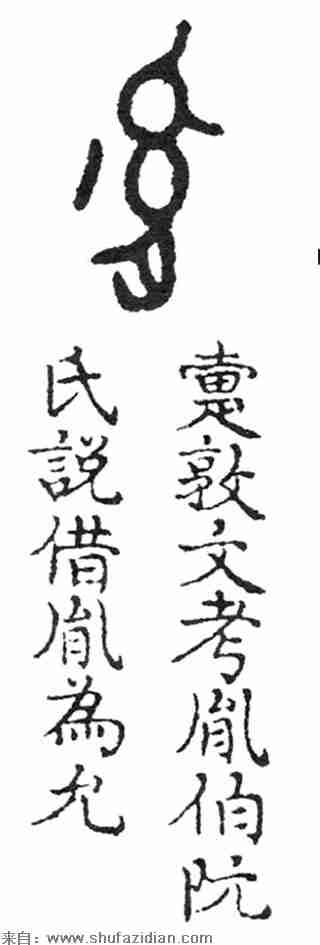 疐敦文考胤伯阮
氏説借胤為允
来自：www.shufazidian.com